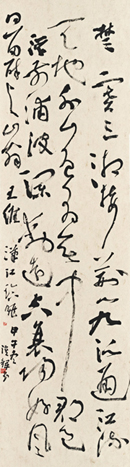 楚塞三湘接荆门九派通江流
天地外山色有无中郡邑
浮前浦波澜动远空襄阳好风
日留醉与山翁 王维 汉江临眺 甲午